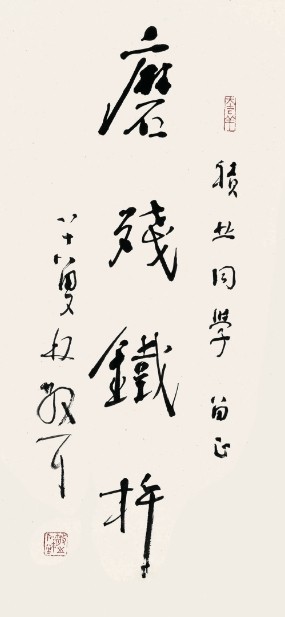 積同學留正
磨殘鐵杵
八十八叟林散耳